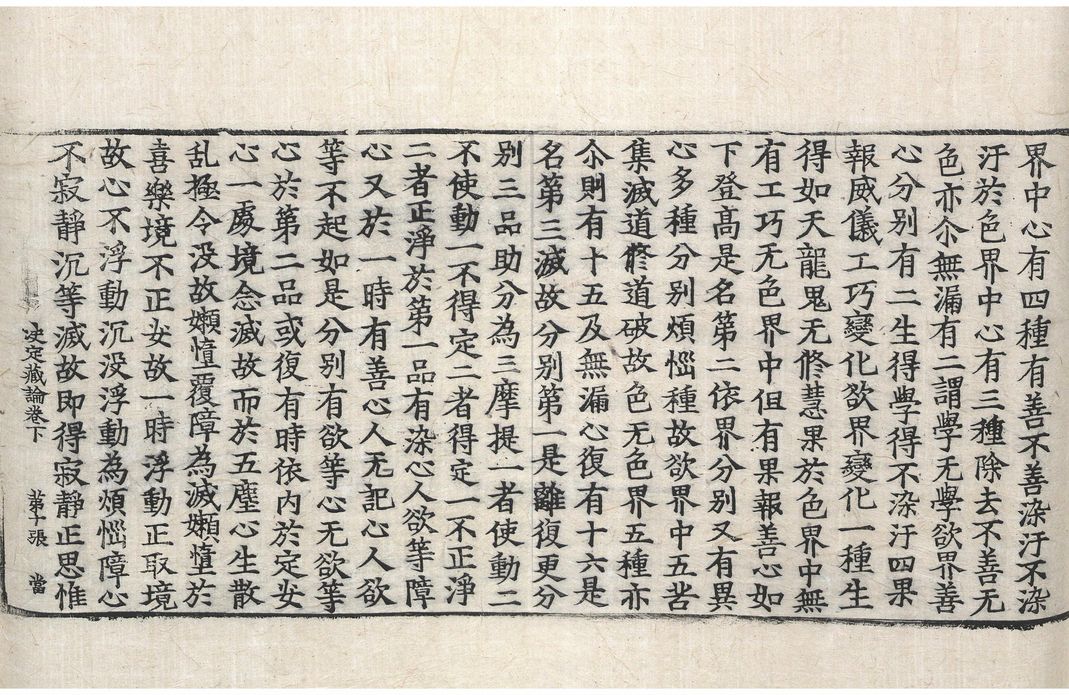 界中心有四種有善不善染汙不染
汙於色界中心有三種除去不善无
色亦尒無漏有二謂學无學欲界善
心分別有二生得學得不染汙四果
報威儀工巧變化欲界變化一種生
得如天龍鬼无修慧果於色界中無
有工巧无色界中伹有果報善心如
下登髙是名第二依界分別又有異
心多種分別煩惱種故欲界中五苦
集滅道修道破故色无色界五種亦
尒則有十五及無漏心復有十六是
名第三滅故分別第一是離復更分
別三品助分為三摩提一者使動二
不使動一不得定二者得定一不正淨
二者正淨於第一品有染心人欲等障
心又於一時有善心人无記心人欲
等不起如是分別有欲等心无欲等
心於第二品或復有時依内於定安
心一處境念滅故而於五塵心生散
乱極令没故嬾憧覆障為滅嬾憧於
喜樂境不正安故一時浮動正取境
故心不浮動沉没浮動為煩惱障心
不寂靜沉等滅故即得寂靜正思惟
决定藏論卷下　第十張　當